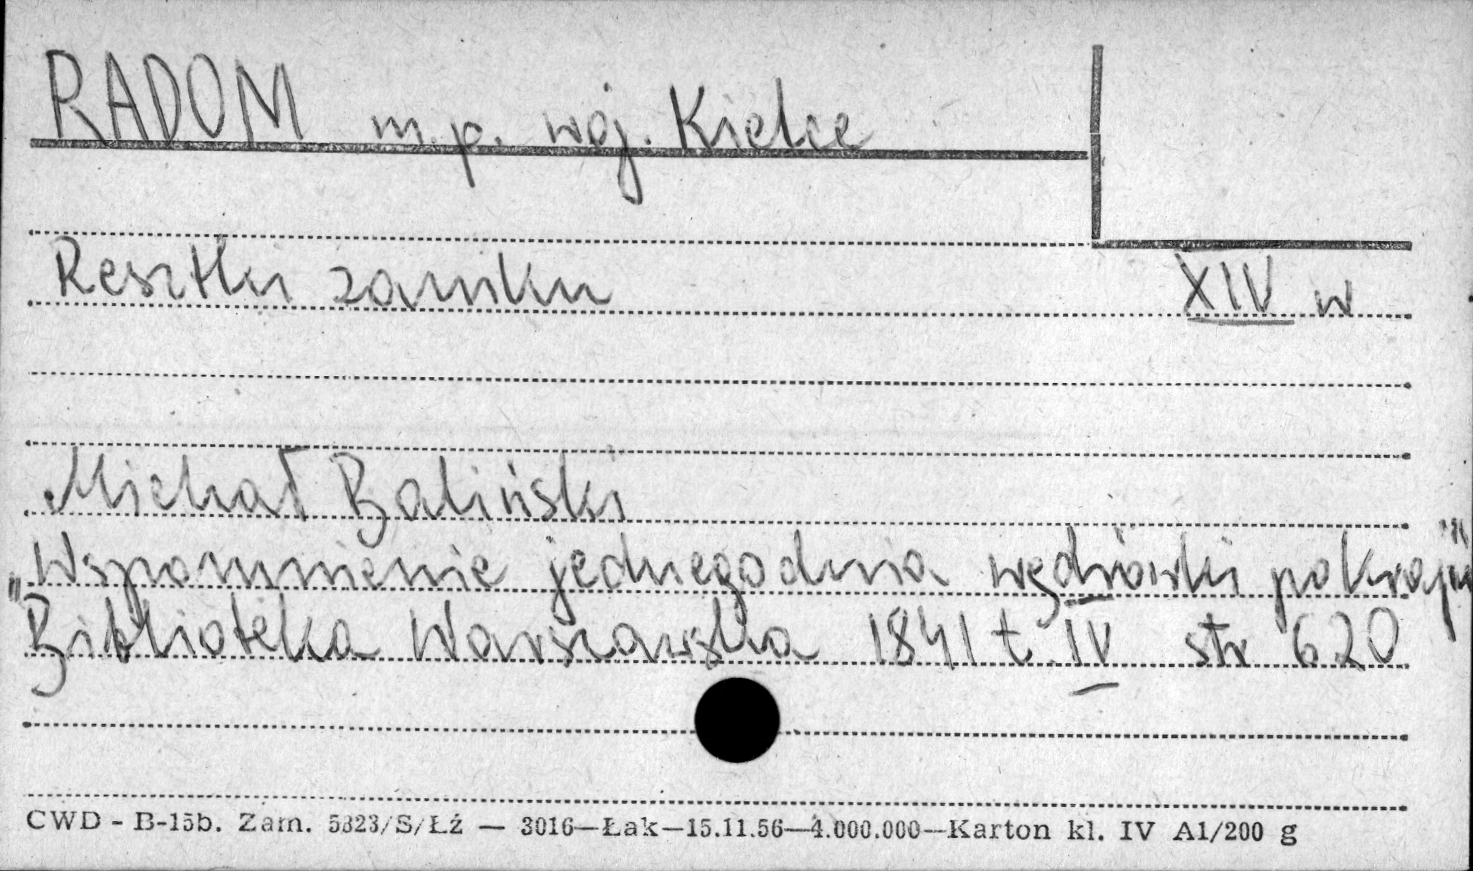 RADOM m.p. woj. Kielce
Resztki zamku XIV w
Michał Baliński
Wspomnienie jednegodnia wędrówki pokraju"
"Biblioteka Warszawska 1841 t. IV str 620
CWD - B-15b. Zam. 5823/S/Łź — 3016—Łak—15.11.56—4.000.000—Karton kl. IV A1/200 g